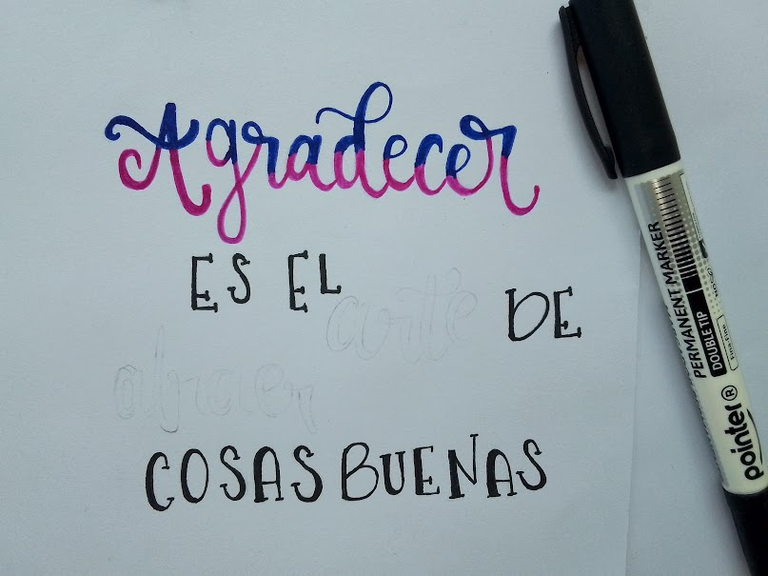 Agradecer
ES EL arte DE
atraer
COSAS BUENAS
PERMANENT MARKER
DOUBLE TIP
pointer®